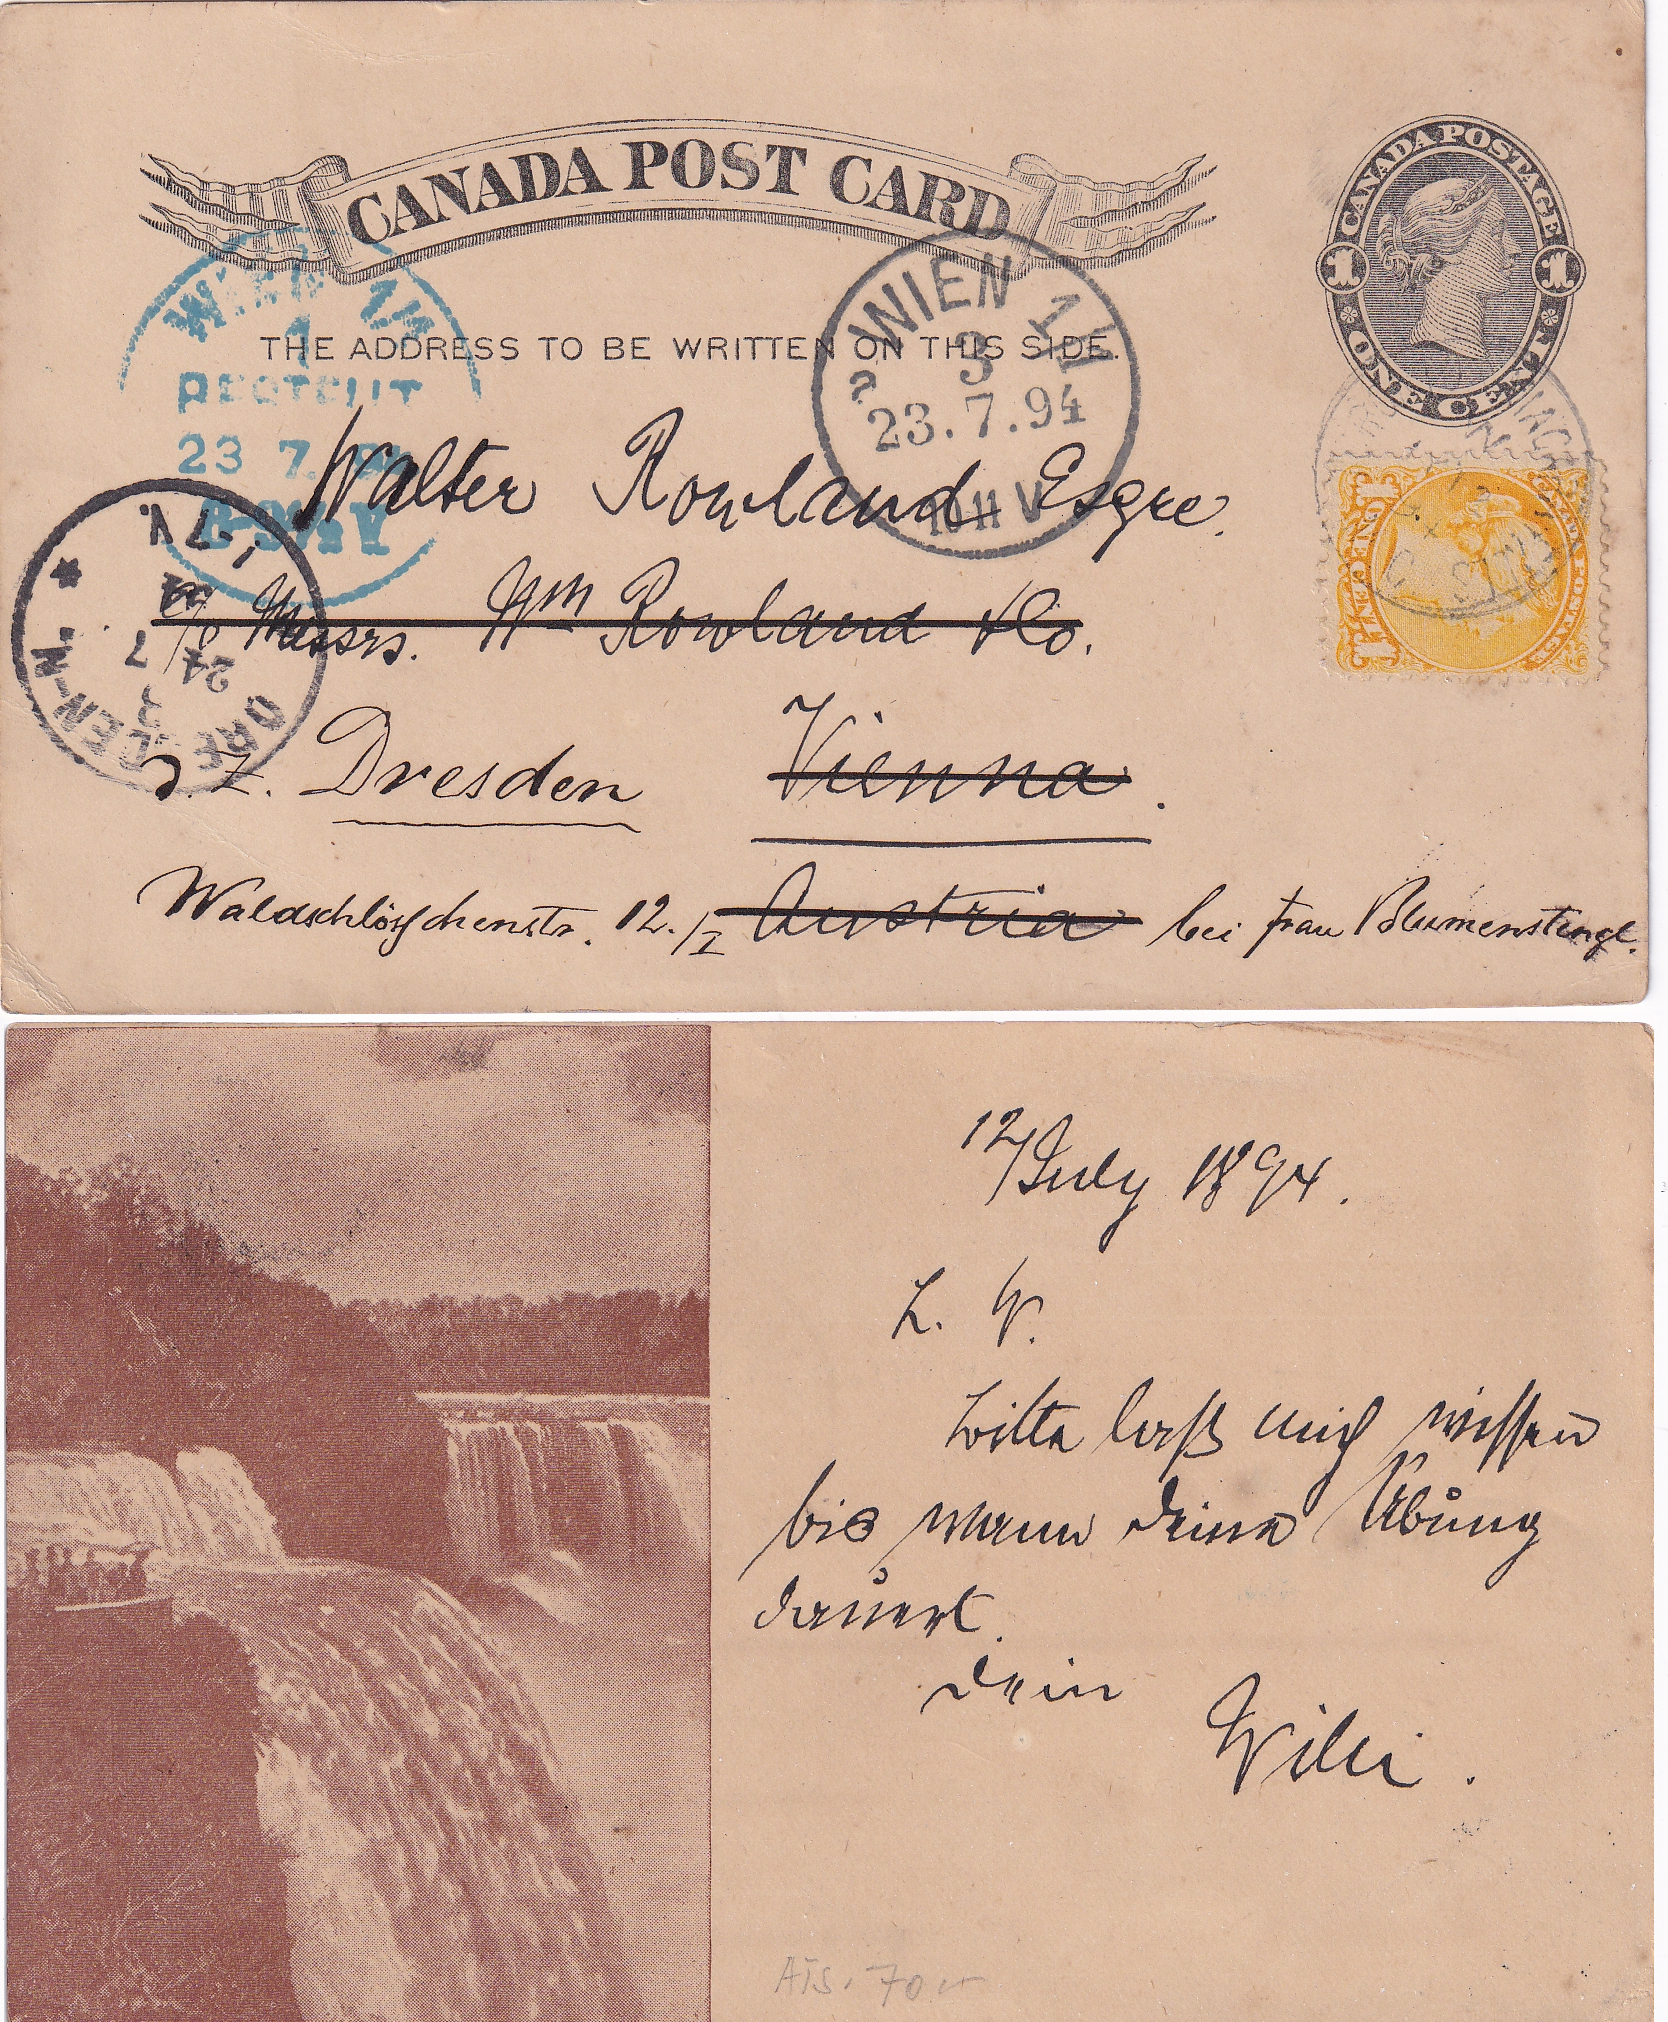 CANADA POST CARD
THE ADDRESS TO BE WRITTEN ON THIS SIDE.
CANADA POSTAGE
1 1
ONE CENT
WIEN 1/1
3
23.7.94
10 1/2 V
WIEN
1
BESTELLT
23 7.
ONE CENT
DRESDEN-N.
24 7
Walter Rowland Esqre.
c/o Messrs. Wm Rowland & Co.
z. Z. Dresden Vienna.
Waldschlösschenstr. 12./I Austria bei Frau Blumenstengl.
12/July 1894.
L. W.
bitte laß mich wissen
bis wann deine Übung
dauert.
Dein
Willi.